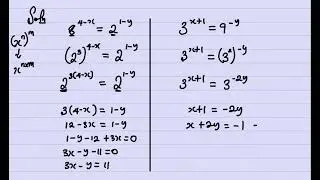 Soln
(xⁿ)ᵐ
↓
xⁿˣᵐ
8⁴⁻ˣ = 2¹⁻ʸ
(2³)⁴⁻ˣ = 2¹⁻ʸ
2³⁽⁴⁻ˣ⁾ = 2¹⁻ʸ
3(4-x) = 1-y
12-3x = 1-y
1-y-12+3x=0
3x-y-11=0
3x-y=11
3ˣ⁺¹ = 9⁻ʸ
3ˣ⁺¹ = (3²)⁻ʸ
3ˣ⁺¹ = 3⁻²ʸ
x+1 = -2y
x+2y = -1 -